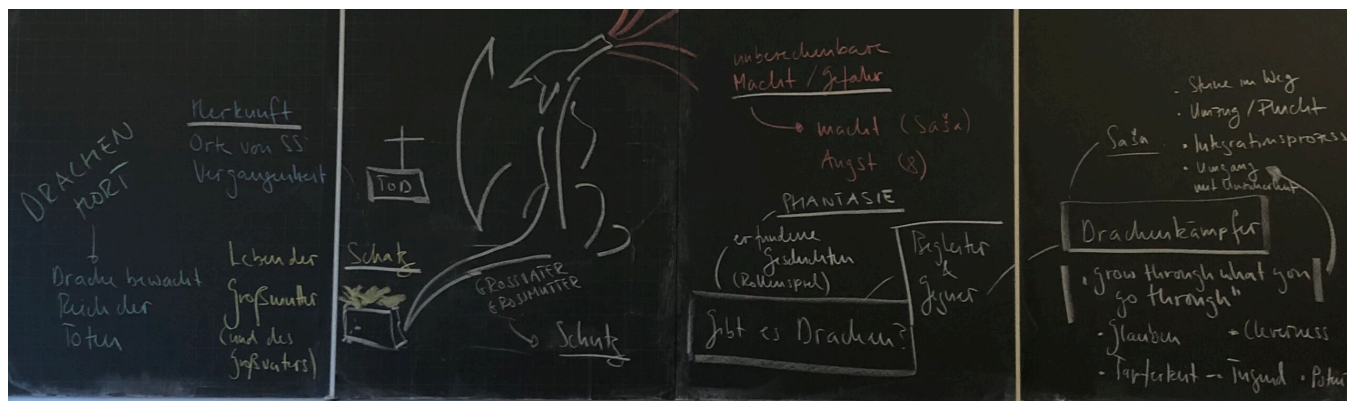 DRACHEN
HORT
Drache bewacht
Reich der
Toten
Herkunft
Orte von SS
Vergangenheit
Leben der
Großmutter
(und des
Großvaters)
TOD
Schatz
GROSSVATER
GROSSMUTTER
Schutz
unberechenbare
Macht / Gefahr
macht (Saša)
Angst (8)
PHANTASIE
erfundene
Geschichten
(Rollenspiel)
Gibt es Drachen?
Begleiter
&
Gegner
Saša
· Steine im Weg
· Umzug / Flucht
· Integrationsprozess
· Umgang
mit Unsicherheit
Drachenkämpfer
"grow through what you
go through"
· Glauben
· Cleverness
· Tapferkeit - Tugend